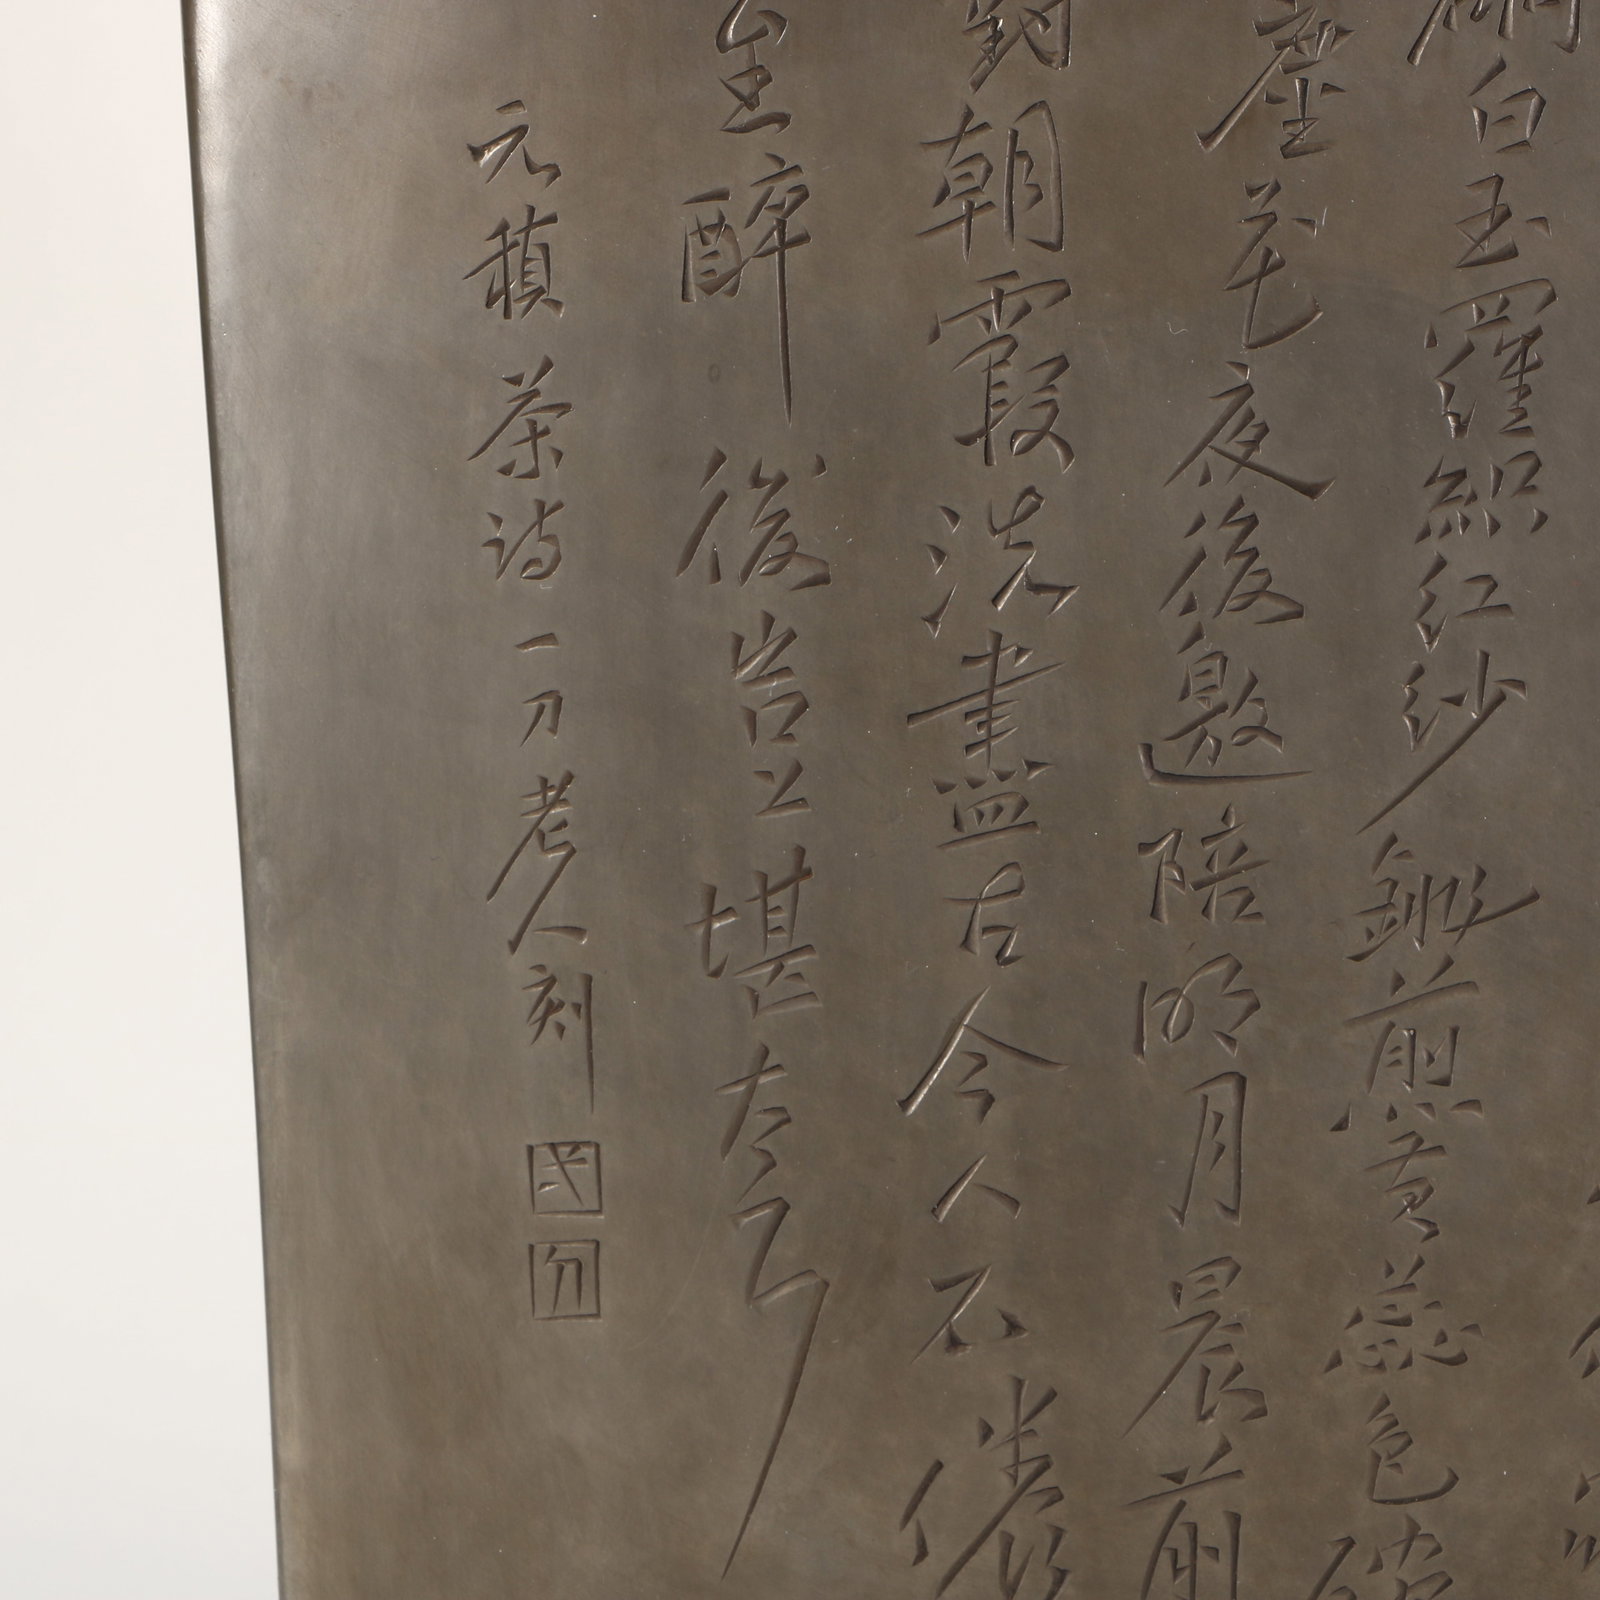 白玉羅織紅紗銚煎黄蕊色
塵花夜後邀陪明月晨前
對朝霞洗盡古今人不倦
至醉後豈堪夸
元稹茶诗一刀老人刻